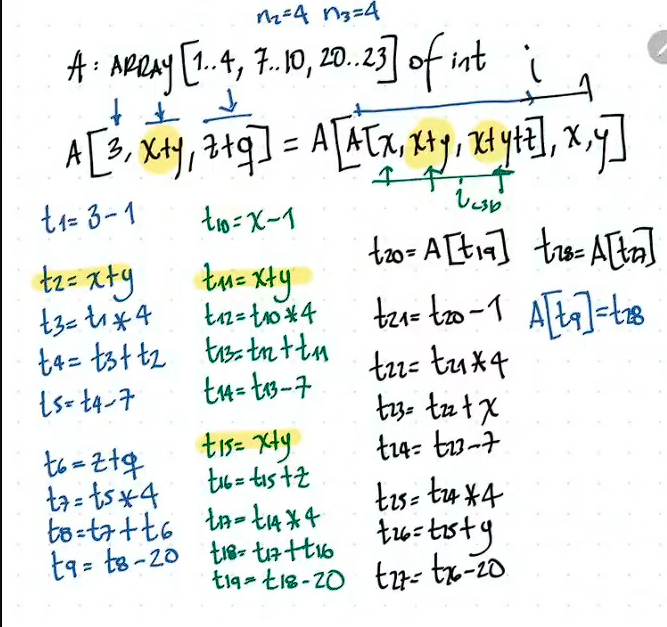 n2=4 n3=4
A: ARRAY [1..4, 7..10, 20..23] of int i
A[3, x+y, z+q] = A[A[x, x+y, x+y+z], x, y]
t1= 3-1
t2= x+y
t3= t1*4
t4= t3+t2
t5= t4-7
t6= z+q
t7= t5*4
t8= t7+t6
t9= t8-20
t10= x-1
t11= x+y
t12= t10*4
t13= t12+t11
t14= t13-7
t15= x+y
t16= t15+z
t17= t14*4
t18= t17+t16
t19= t18-20
t20= A[t19]
t21= t20-1
t22= t21*4
t23= t22+x
t24= t23-7
t25= t24*4
t26= t25+y
t27= t26-20
t28= A[t27]
A[t9]=t28